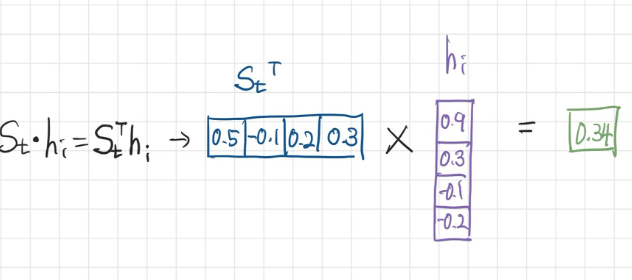 Sₜᵀ
hᵢ
Sₜ·hᵢ = Sₜᵀhᵢ → 0.5 -0.1 0.2 0.3 × 0.9 = 0.34
0.3
-0.1
-0.2